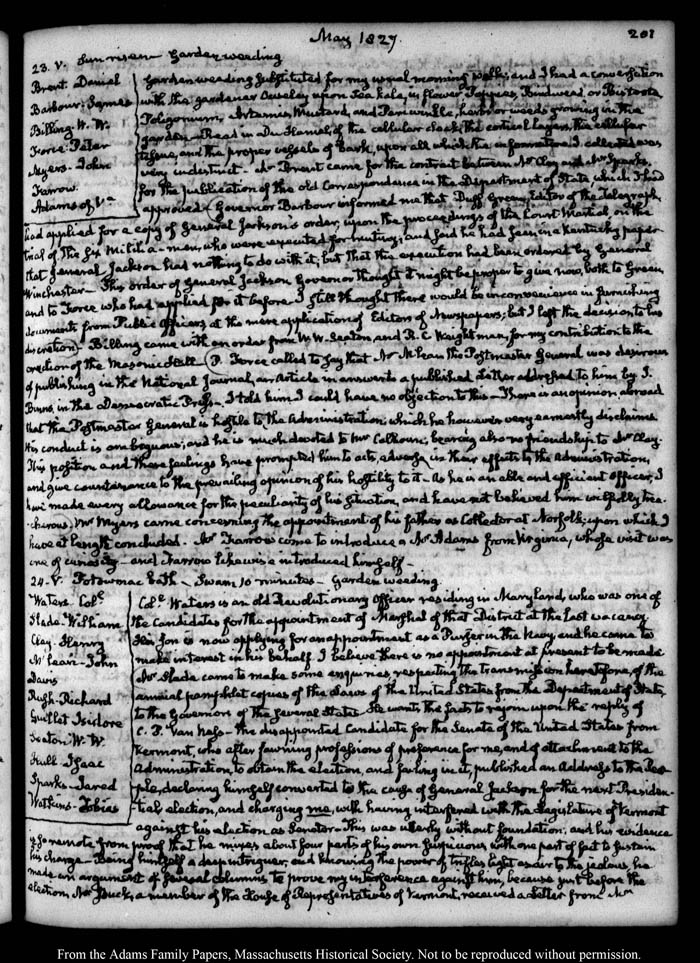 May 1827.
201
23. V. Sun risen Garden weeding
Brent. Daniel
Barbour. James
Billing. W. W.
Force. Peter
Myers. John
Farrow.
Adams of Va
Garden weeding substituted for my usual morning walk; and I had a conversation
with the gardener Ouseley upon Sea kale, upon Poppies, Bindweed or Bistorta
Polygonum, Mustard, and Periwinkle, herbs or weeds growing in the
garden. Read in Du Hamel, of the cellular the cortical layers, the cellular
tissue, and the proper vessels of bark, upon all which the information I collected was
very indistinct. Mr Brent came for the contract between Mr Clay and Mr Sparks,
for the publication of the old Correspondence in the Department of State, which I had
approved. Governor Barbour informed me that Duff Green, Editor of the Telegraph,
had applied for a copy of General Jackson's order, upon the proceedings of the Court Martial, on the
trial of the six Militia-men, who were executed for mutiny; and said he had seen in a Kentucky paper
that General Jackson had nothing to do with it; but that the execution had been ordered by General
Winchester. This order of General Jackson Governor thought it might be proper to give now, both to Green,
and to Force who had applied for it before. I still thought there would be inconvenience in furnishing
documents from Public Officers, at the mere application of Editors of Newspapers; but I left the decision to his
discretion. Billing came with an order from W. W. Seaton and R. C. Weightman, for my contribution to the
erection of the Masonic Hall. P. Force called to say that Mr McLean the Postmaster General was desirous
of publishing in the National Journal, an Article in answer to a published Letter addressed to him by J.
Binns, in the Democratic Press. I told him I could have no objection to this. There is an opinion abroad
that the Postmaster General is hostile to the Administration, which he however very earnestly disclaims.
His conduct is ambiguous, and he is much devoted to Mr Calhoun; bearing also no friendship to Mr Clay.
This position and these feelings have prompted him to acts, adverse in their effects to the Administration,
and give countenance to the prevailing opinion of his hostility to it. As he is an able and efficient Officer, I
have made every allowance for the peculiarity of his situation, and have not believed him wilfully trea-
cherous. Mr Myers came concerning the appointment of his father as Collector at Norfolk; upon which I
have at length concluded. Mr Farrow came to introduce a Mr Adams from Virginia, whose visit was
one of curiosity. and Farrow likewise introduced himself.
24. V. Potowmac bath. Swam 10 minutes. Garden weeding.
Waters. Cole
Slade. William
Clay. Henry
McLean. John
Davis
Rush. Richard
Guillet Isidore
Seaton W. W.
Hull Isaac
Sparks. Jared
Watkins. Tobias
Cole Waters is an old Revolutionary Officer residing in Maryland, who was one of
the Candidates for the appointment of Marshal of that District at the last vacancy
His Son is now applying for an appointment as a Purser in the Navy, and he came to
make interest in his behalf. I believe there is no appointment at present to be made
Mr Slade came to make some enquiries, respecting the transmission heretofore, of the
annual pamphlet copies of the Laws of the United States from the Department of State,
to the Governors of the Several States. He wants the facts to rejoin upon the reply of
C. P. Van Ness. the disappointed Candidate for the Senate of the United States from
Vermont, who after fawning professions of preference for me, and of attachment to the
Administration, to obtain the election, and failing in it, published an Address to the Peo-
ple, declaring himself converted to the cause of General Jackson for the next Presiden-
tial election, and charging me, with having interfered with the Legislature of Vermont
against his election as Senator. This was utterly without foundation, and his evidence
is so remote from proof that he mixes about four parts of his own suspicions with one part of fact to sustain
his charge. Being himself a deep intriguer, and knowing the power of trifles light as air to the jealous, he
made an argument of several columns to prove my interference against him, because just before the
election, Mr Buck, a member of the House of Representatives of Vermont, received a Letter from Mr
From the Adams Family Papers, Massachusetts Historical Society. Not to be reproduced without permission.